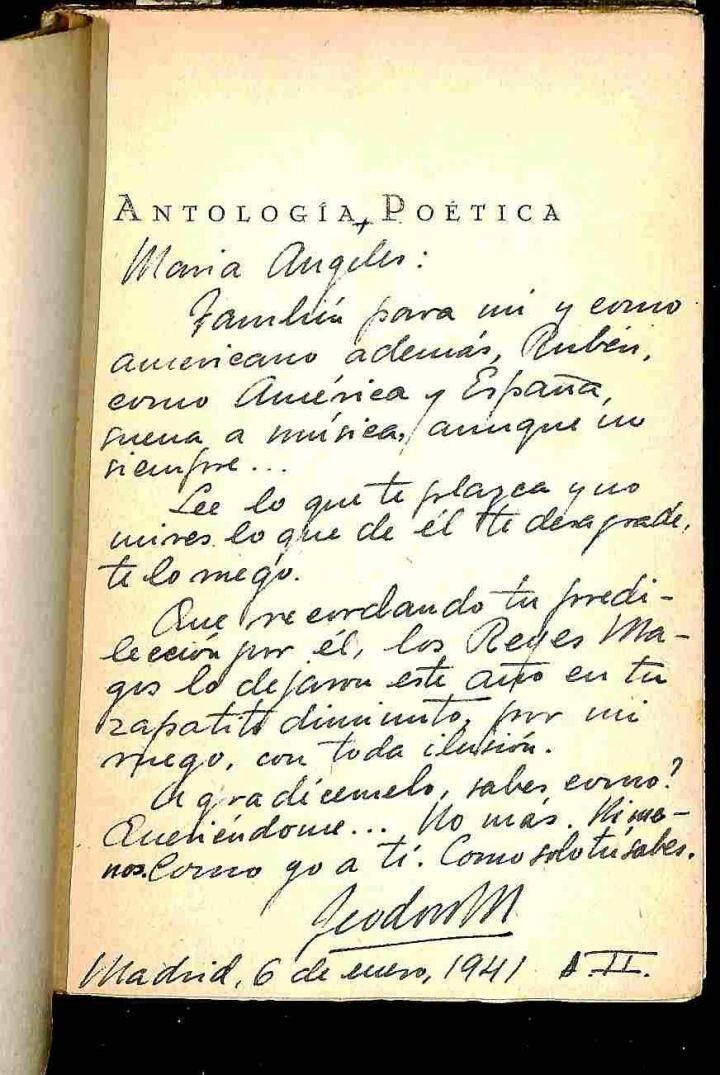 ANTOLOGÍA POÉTICA
+
Maria Angeles:
También para mi y como
americano además, Rubén,
como América y España,
suena a música, aunque no
siempre...
Lee lo que te plazca y no
mires lo que de él te desagrade,
te lo ruego.
Que recordando tu predi-
lección por él, los Reyes Ma-
gos lo dejaron este año en tu
zapatito diminuto, por mi
ruego, con toda ilusión.
Agradécemelo, sabes como?
Queriéndome... No más. Ni me-
nos. Como yo a ti. Como solo tú sabes.
Madrid, 6 de enero, 1941 A. II.